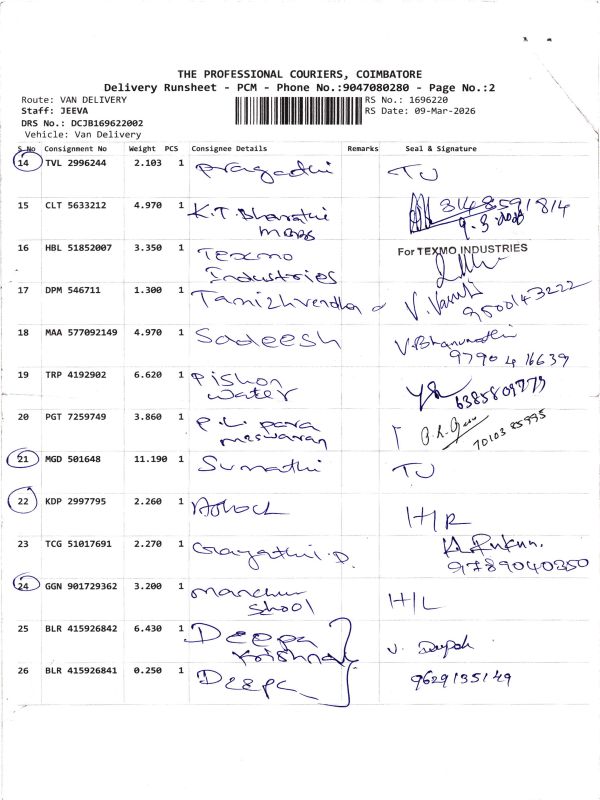 THE PROFESSIONAL COURIERS, COIMBATORE
Delivery Runsheet - PCM - Phone No.:9047080280 - Page No.:2
Route: VAN DELIVERY RS No.: 1696220
Staff: JEEVA RS Date: 09-Mar-2026
DRS No.: DCJB169622002
Vehicle: Van Delivery
S.No Consignment No Weight PCS Consignee Details Remarks Seal & Signature
14 TVL 2996244 2.103 1 Pragadhi TJ
15 CLT 5633212 4.970 1 K.T. Bharathi 3148591814
mess
16 HBL 51852007 3.350 1 Texmo For TEXMO INDUSTRIES
Industries
17 DPM 546711 1.300 1 Tamizhvendhan 9500143222
18 MAA 577092149 4.970 1 Sadeesh V. Bhanumathi
9790416639
19 TRP 4192902 6.620 1 Pishon 6385809773
water
20 PGT 7259749 3.860 1 P.L. para 7010385995
meswaran
21 MGD 501648 11.190 1 Sumathi TJ
22 KDP 2997795 2.260 1 Ashock H/R
23 TCG 51017691 2.270 1 Gayathri.P.
9789040350
24 GGN 901729362 3.200 1 manchur H/L
shool
25 BLR 415926842 6.430 1 Deepa V. Deepak
Krishna
26 BLR 415926841 0.250 1 Deepa 9629135149